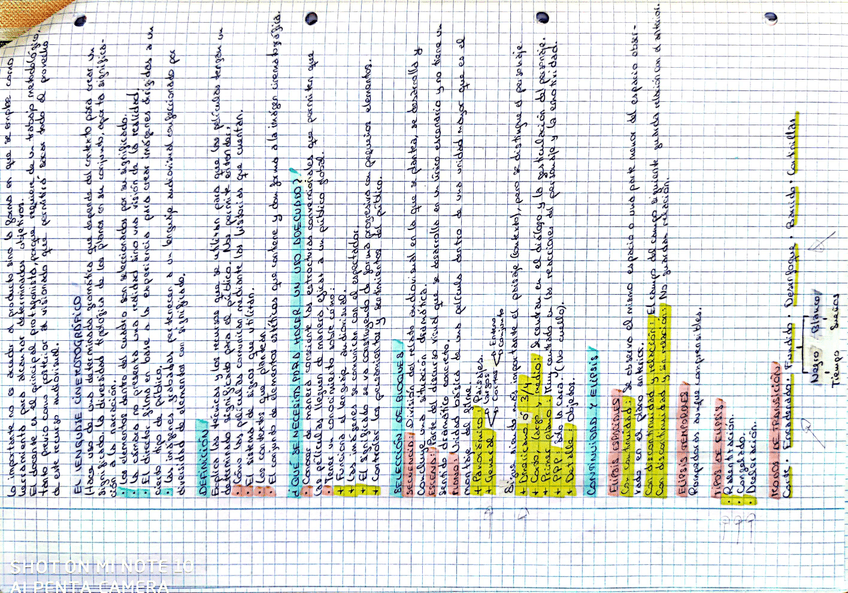 lo importante no es acceder a producto sino la forma en que se emplea como
herramienta para alcanzar determinados objetivos.
El docente es el principal protagonista, porque requiere de un trabajo metodológico,
tanto previo como posterior a la visionado que permitirá sacar todo el provecho
de este recurso audiovisual.
EL LENGUAJE CINEMATOGRÁFICO
Hace uso de una determinada gramática que depende del contexto para crear un
significado, la diversidad tipológica de los planos en su conjunto, aporta significa-
ción a la narración.
Los elementos dentro del cuadro son seleccionados por su significado.
La cámara no presenta una realidad sino una visión de la realidad.
El director filma en base a la experiencia para crear imágenes dirigidas a un
cierto tipo de público.
Las imágenes grabadas pertenecen a un lenguaje audiovisual confeccionado por
diversidad de elementos con significado.
DEFINICIÓN
Explica las técnicas y los recursos que se utilizan para que las películas tengan un
determinado significado para el público. Nos permite entender:
Cómo las películas comunican mediante las historias que cuentan.
El sistema de signos que utilizan.
Los contextos que plantean.
El conjunto de elementos específicos que contiene y dan forma a la imagen cinematográfica.
¿QUÉ SE NECESITA PARA HACER UN USO ADECUADO?
Conocer de manera consciente las estructuras convencionales que permiten que
las películas lleguen de manera eficaz a un público global.
Tener un conocimiento sobre cómo:
+ Funciona el lenguaje audiovisual.
+ Las imágenes se comunican con el espectador.
+ El significado se va construyendo de forma progresiva con pequeños elementos.
+ Controlar los pensamientos y sentimientos del público.
SELECCIÓN DE BLOQUES
SECUENCIA: División del relato audiovisual en la que se plantea, se desarrolla y
concluye una situación dramática.
ESCENA: Parte del discurso visual que se desarrolla en un único escenario y no tiene un
sentido dramático concreto.
PLANO: Unidad básica de una película dentro de una unidad mayor que es el
montaje del filme.
+ Panorámico:
+ General
Largos
Entero
Conjunto
Sigue siendo más importante el paisaje (contexto), pero se distingue el personaje.
+ Americano o 3/4
+ Corto, largo y medio: Se centran en el diálogo y la gesticulación del personaje.
+ Primer plano: Centrado en las reacciones del personaje y la emotividad.
+ PPP: Solo la cara. (No cuello).
+ Detalle: Objetos.
CONTINUIDAD Y ELIPSIS
ELIPSIS ESPACIALES
Con continuidad: Se observa el mismo espacio o una parte menor del espacio obser-
vado en el plano anterior.
Con discontinuidad y relación: El campo del campo siguiente guarda relación con el anterior.
Con discontinuidad y sin relación: No guardan relación.
ELIPSIS TEMPORALES
Rompedoras aunque comprensibles.
TIPOS DE ELIPSIS
Ralentización.
Congelado.
Desaceleración.
MODOS DE TRANSICIÓN
Corte · Encadenado · Fundido · Desenfoque · Barrido · Cortinillas
Negro Blanco
Tiempo Sueños
SHOT ON MI NOTE 10
AI PENTA CAMERA